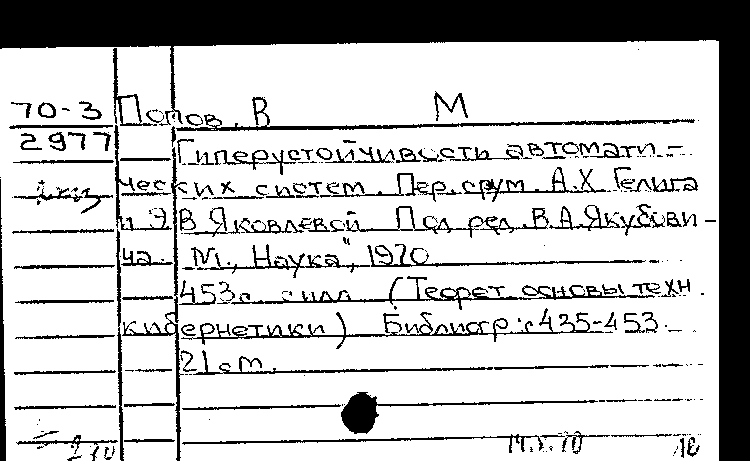 70-3 Попов. В М
2977 Гиперустойчивость автомати-
2 киз ческих систем. Пер. с рум. А.Х Гелига
и Э В Яковлевой Под ред. В.А.Якубови-
ча. М., Наука", 1970
453с. с илл (Теорет. основы техн.
кибернетики) Библиогр: с 435-453.
21 см.
14.X.70